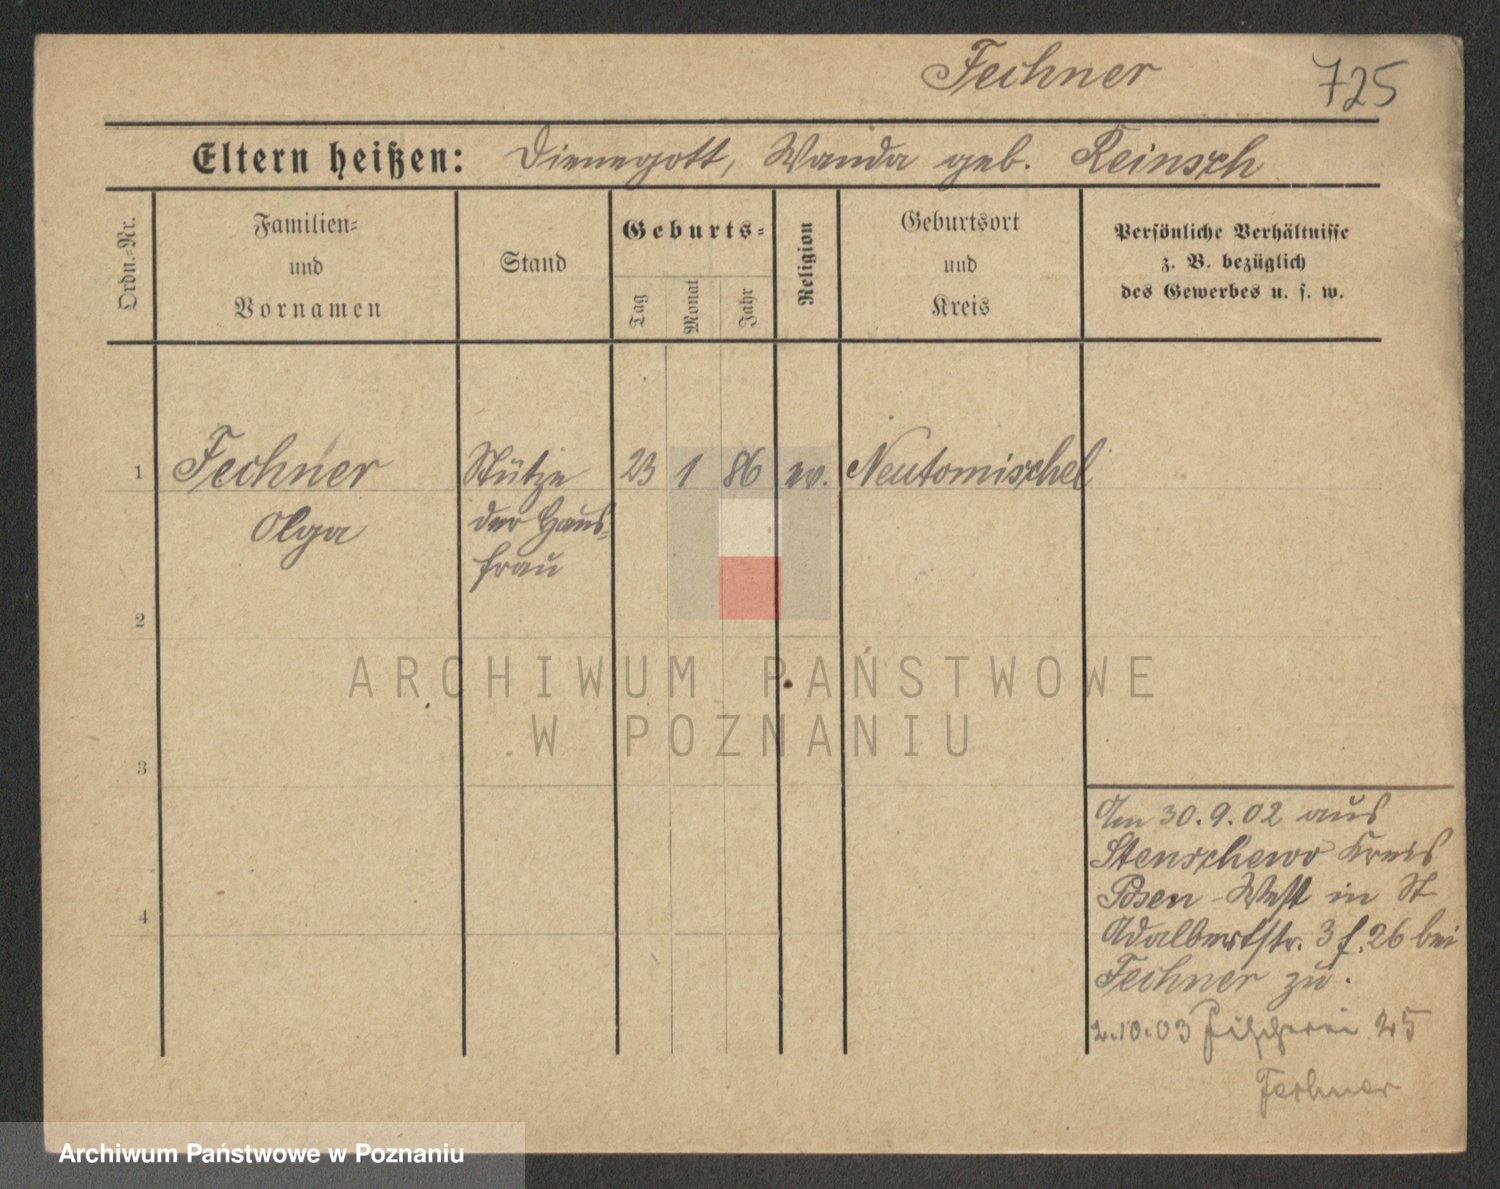 Fechner 725
Eltern heißen: Dienegott, Wanda geb. Reinsch
Ordn.-Nr.
Familien-
und
Vornamen
Stand
Geburts-
Tag
Monat
Jahr
Religion
Geburtsort
und
Kreis
Persönliche Verhältnisse
z. B. bezüglich
des Gewerbes u. s. w.
1 Fechner Stütze 23 1 86 ev. Neutomischel
Olga der Haus-
frau
2
3
4
Am 30.9.02 aus
Stenschewo Kreis
Posen-West in St
Adalbertstr. 3 f. 26 bei
Fechner zu.
2.10.03 Fischerei 25
Fechner
ARCHIWUM PAŃSTWOWE
W POZNANIU
Archiwum Państwowe w Poznaniu